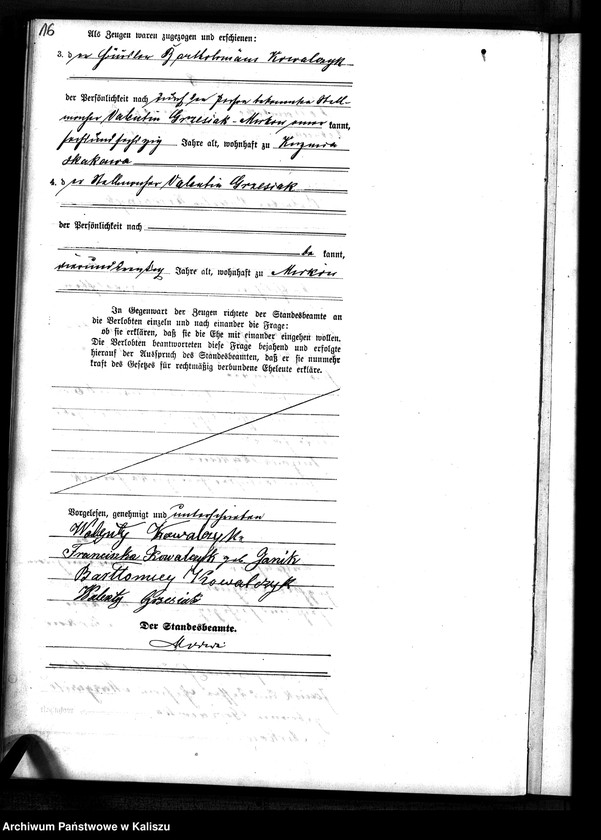 16
Als Zeugen waren zugezogen und erschienen:
3. der Häusler Bartholomäus Kowalczyk
der Persönlichkeit nach durch die Person bekannten Stell-
macher Valentin Grzesiak-Mirkow aner kannt,
sechsundsechzig Jahre alt, wohnhaft zu Kuznica
skakawa
4. der Stellmacher Valentin Grzesiak
der Persönlichkeit nach
be kannt,
vierunddreißig Jahre alt, wohnhaft zu Mirkow
In Gegenwart der Zeugen richtete der Standesbeamte an
die Verlobten einzeln und nach einander die Frage:
ob sie erklären, daß sie die Ehe mit einander eingehen wollen.
Die Verlobten beantworteten diese Frage bejahend und erfolgte
hierauf der Ausspruch des Standesbeamten, daß er sie nunmehr
kraft des Gesetzes für rechtmäßig verbundene Eheleute erkläre.
Vorgelesen, genehmigt und unterschrieben
Walenty Kowalczyk
Franciszka Kowalczyk geb Janik
Bartłomiey Kowalczyk
Walenty Grzesiak
Der Standesbeamte.
Archiwum Państwowe w Kaliszu